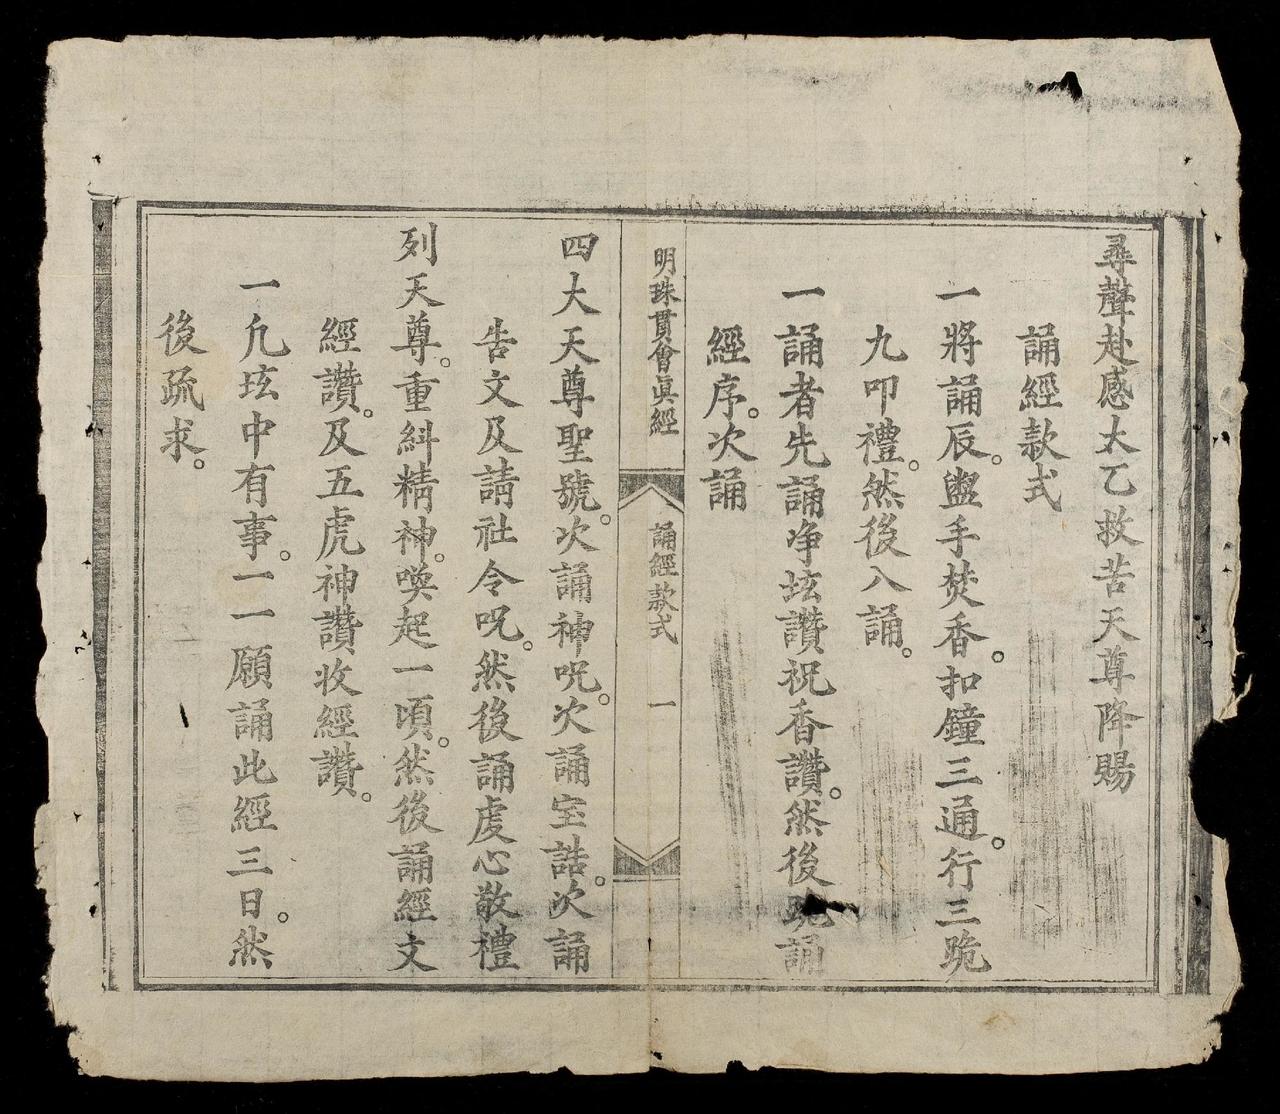 尋聲赴感太乙救苦天尊降賜
誦經款式
一將誦辰。盥手焚香。扣鐘三通。行三跪
九叩禮。然後入誦。
一誦者先誦净坛讚祝香讚。然後跪誦
經序。次誦
明珠貫會眞經
誦經款式
一
四大天尊聖號。次誦神呪。次誦宝誥。次誦
告文及請社令呪。然後誦虔心敬禮
列天尊。重糾精神。喚起一頃。然後誦經文
經讚。及五虎神讚收經讚。
一凢坛中有事。一一願誦此經三日。然
後疏求。